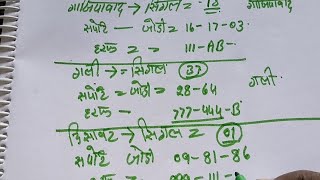 गाजियाबाद → सिंगल = 18 गाजियाबाद
सपोर्ट — जोड़ी = 16-17-03.
हरूफ = = 111-AB-
गली → = सिंगल (37) गली.
सपोर्ट = जोड़ी = 28-64
हरूफ - 777-444-B
दिसावर → सिंगल = (01)
सपोर्ट जोड़ी 09-81-86
हरूफ =